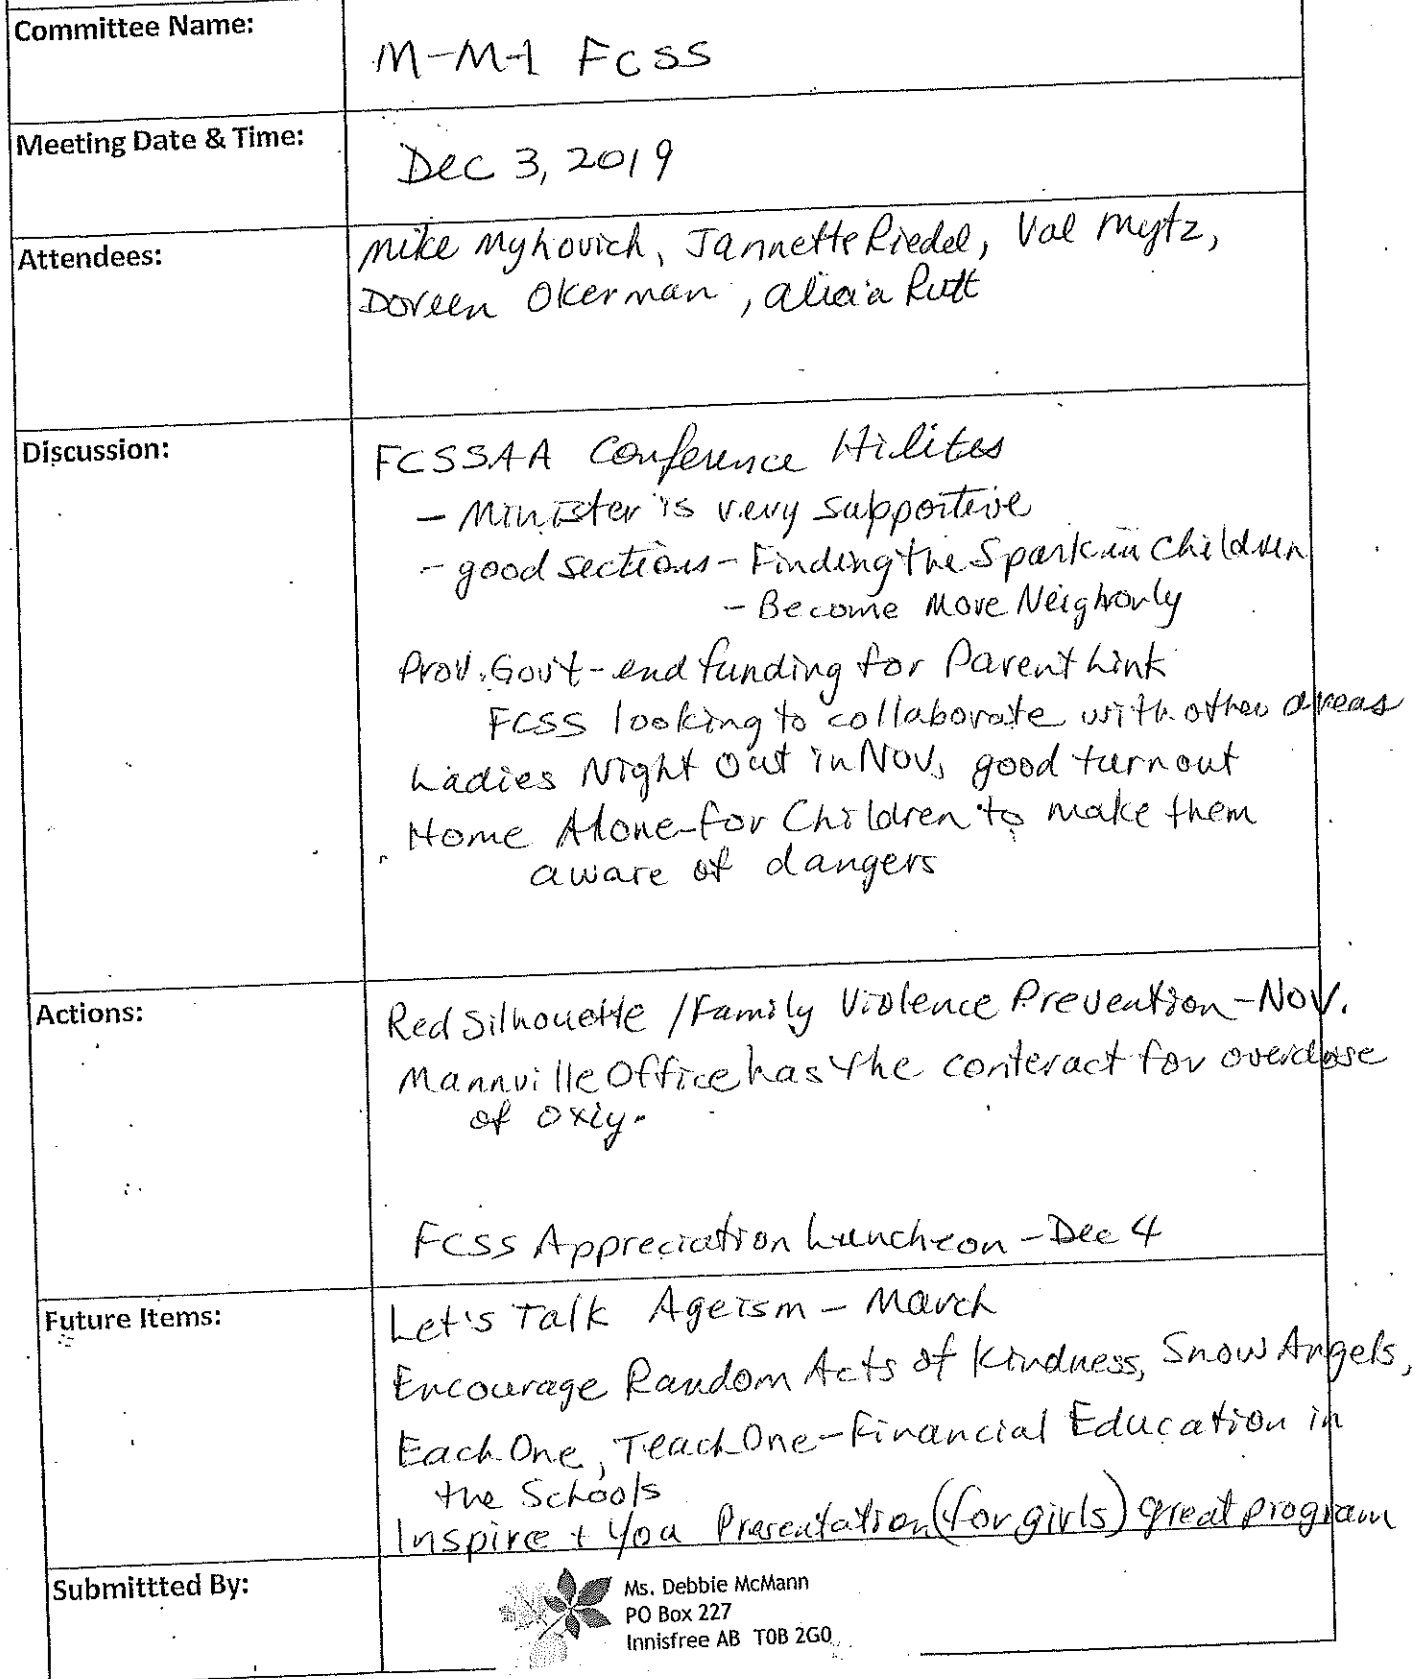 Committee Name:
M-M-I FCSS
Meeting Date & Time:
Dec 3, 2019
Attendees:
Mike Myhovich, Jannette Riedel, Val Mytz,
Doreen Okerman, Alicia Rutt
Discussion:
FCSSAA Conference Hilites
- Minister is very supportive
- good sections - Finding the Spark in Children
- Become More Neighorly
Prov. Gov't - end funding for Parent Link
FCSS looking to collaborate with other areas
Ladies Night Out in Nov, good turnout
Home Alone - for Children to make them
aware of dangers
Actions:
Red Silhouette / Family Violence Prevention - Nov.
Mannville Office has the conteract for overdose
of oxiy.
FCSS Appreciation Luncheon - Dec 4
Future Items:
Let's Talk Ageism - March
Encourage Random Acts of Kindness, Snow Angels,
Each One, Teach One - Financial Education in
the Schools
Inspire + You Presentation (for girls) great program
Submittted By:
Ms. Debbie McMann
PO Box 227
Innisfree AB T0B 2G0